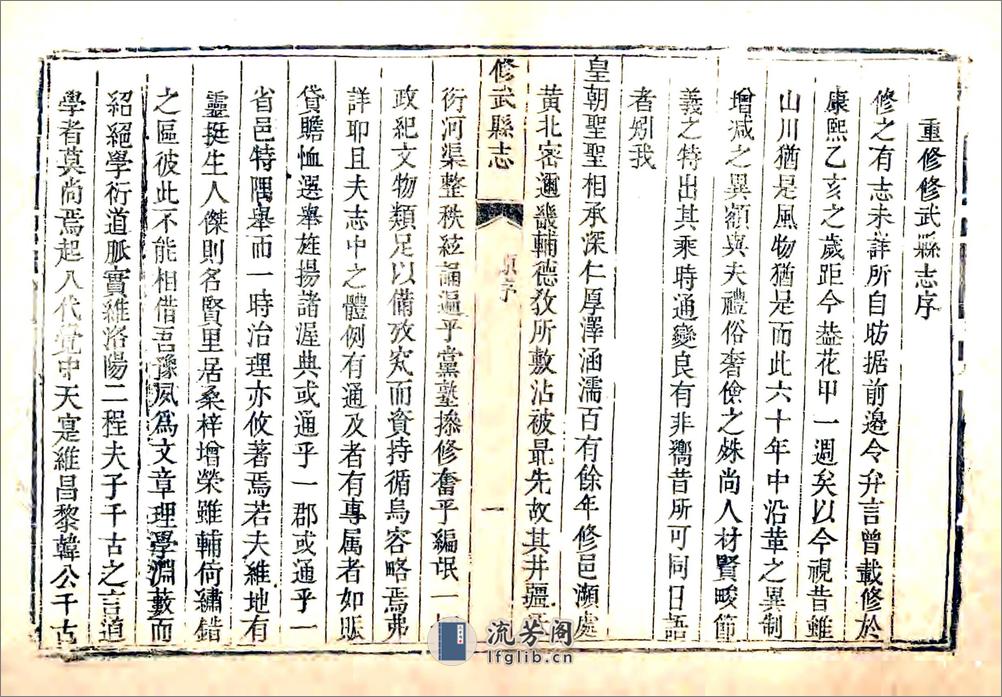 重修修武縣志序
修之有志未詳所自昉据前邊令弁言曾載修於
康熙乙亥之歲距今葢花甲一週矣以今視昔雖
山川猶是風物猶是而此六十年中沿革之異制
增减之異額與夫禮俗奢儉之殊尚人材賢畯節
義之特出其乘時通變良有非嚮昔所可同日語
者矧我
皇朝聖聖相承深仁厚澤涵濡百有餘年修邑瀕處
黄北密邇畿輔德敎所敷沾被最先故其井疆
修武縣志
原序
一
衍河渠整秩絃誦遍乎黨塾㧾修奮乎編氓一
政紀文物類足以備攷䆒而資持循烏容略焉弗
詳耶且夫志中之體例有通及者有專属者如賑
貸贍恤選舉旌揚諸渥典或通乎一郡或通乎一
省邑特隅舉而一時治理亦攸著焉若夫維地有
靈挺生人傑則名賢里居桑梓增榮雖輔倚繡錯
之區彼此不能相借吾豫夙爲文章理學淵藪而
紹絕學衍道脈實維洛陽二程夫子千古之言道
學者莫尚焉起八代覺中天寔維昌黎韓公千古
流芳阁
lfglib.cn